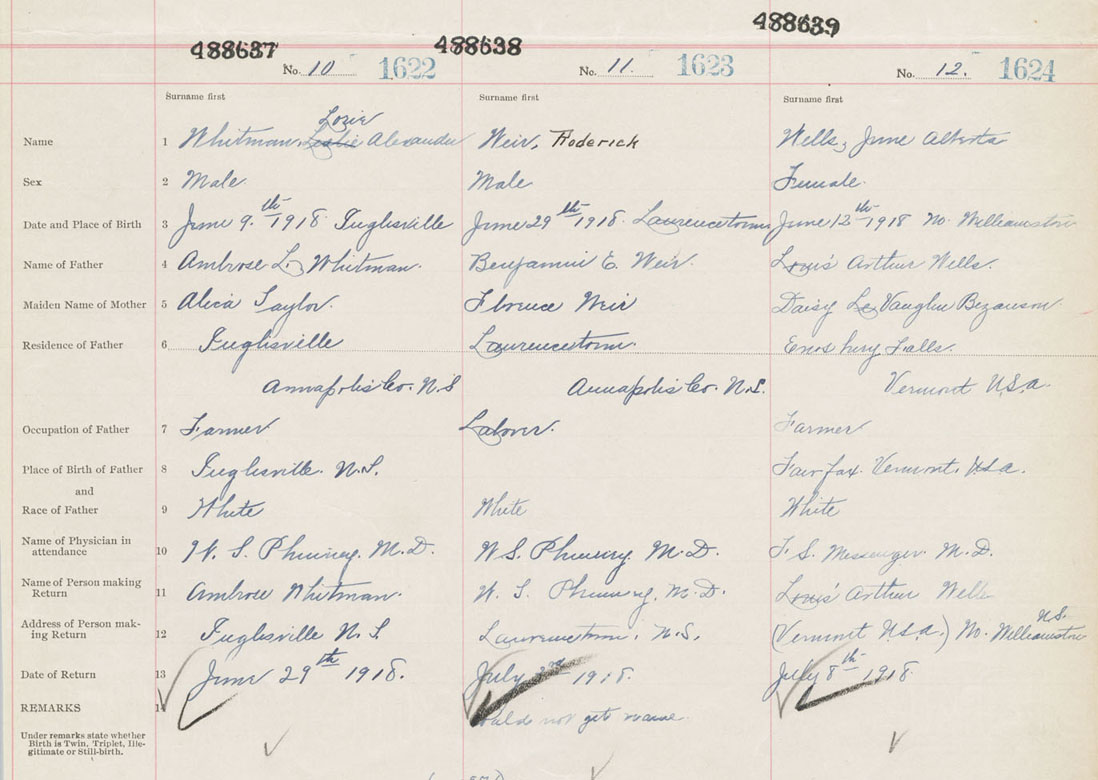 488637 488638 488639
No. 10 1622 No. 11. 1623 No. 12. 1624
Surname first Surname first Surname first
Lorie
Name 1 Whitman, Leslie Alexander Weir, Roderick Wells, June Alberta
Sex 2 Male Male Female
Date and Place of Birth 3 June 9.th 1918 Inglisville June 29th 1918. Lawrencetown June 12th 1918 No. Williamston
Name of Father 4 Ambrose L. Whitman. Benjamin E. Weir. Louis Arthur Wells.
Maiden Name of Mother 5 Alica Taylor. Florence Weir Daisy Le Vaughn Bezanson
Residence of Father 6 Inglisville Lawrencetown. Enosburg Falls.
Annapolis Co. N.S Annapolis Co. N.S. Vermont U.S.A.
Occupation of Father 7 Farmer Labover. Farmer
Place of Birth of Father 8 Inglisville N.S. Fairfax Vermont. U.S.A.
and
Race of Father 9 White White White
Name of Physician in
attendance 10 W. S. Phinney, M.D. W.S. Phinney M.D. F. S. Messenger M.D.
Name of Person making
Return 11 Ambrose Whitman. W. S. Phinney, M.D. Louis Arthur Wells
Address of Person mak-
ing Return 12 Inglisville N.S Lawrencetown. N.S. (Vermont U.S.A.) No. Williamston N.S.
Date of Return 13 June 29th 1918. July 1918. July 8th 1918
REMARKS 14 not get name.
Under remarks state whether
Birth is Twin, Triplet, Ille-
gitimate or Still-birth.